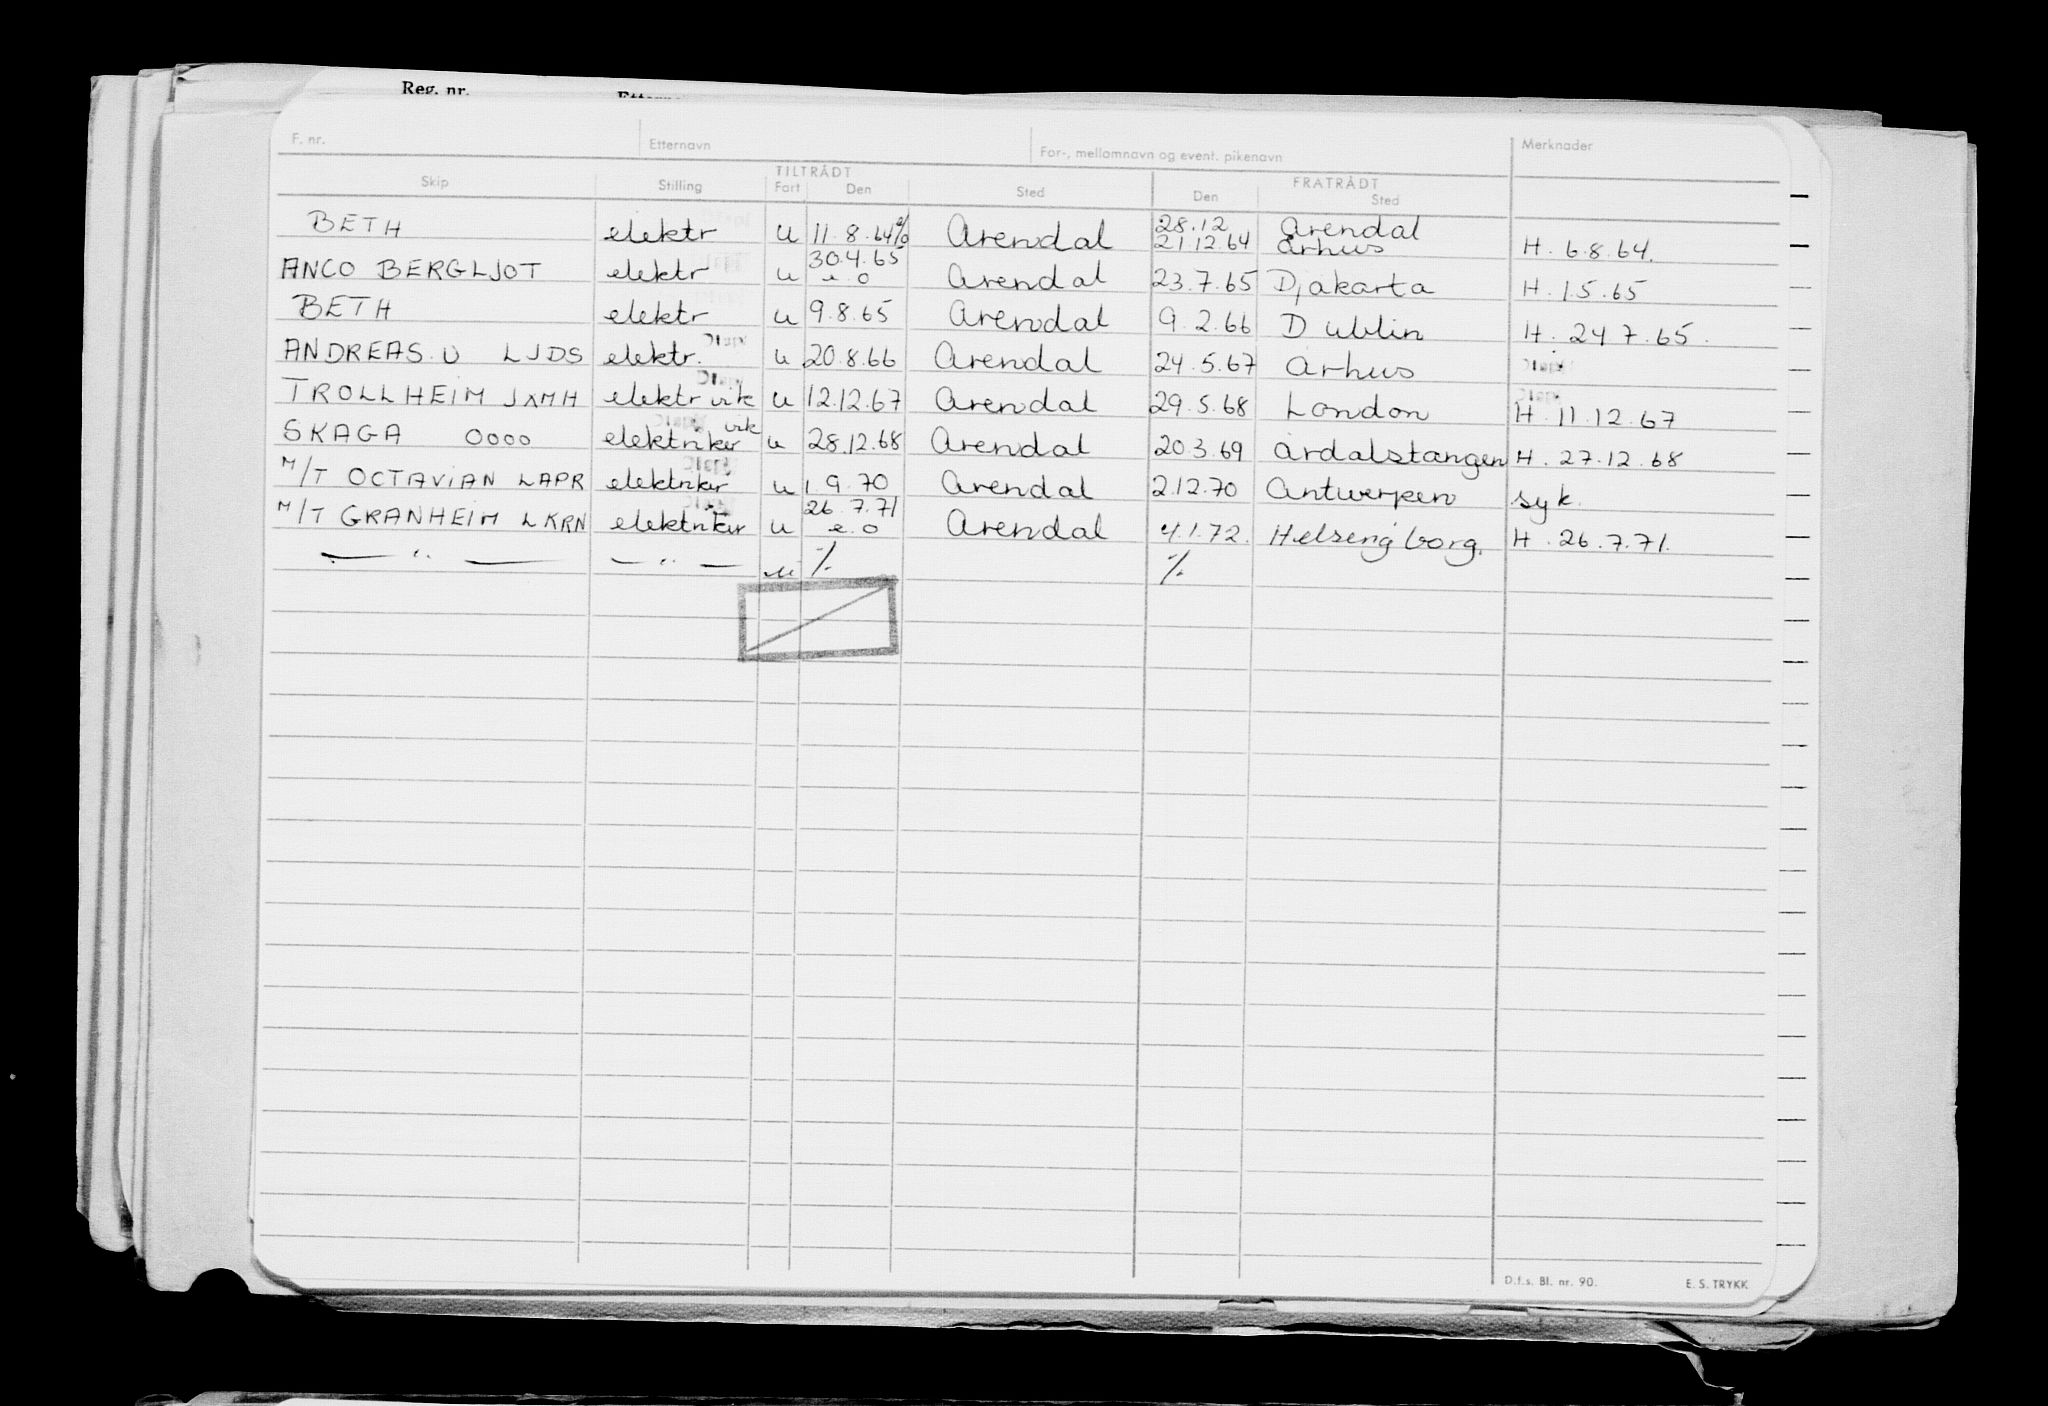 Reg. nr.
F. nr. Etternavn For-, mellomnavn og event. pikenavn Merknader
TILTRÅDT FRATRÅDT
Skip Stilling Fart Den Sted Den Sted
BETH elektr u 11.8.64 % Arendal 28.12 21.12.64 Arendal Århus H. 6.8.64.
ANCO BERGLJOT elektr u 30.4.65 e.o Arendal 23.7.65 Djakarta H. 1.5.65
BETH elektr u 9.8.65 Arendal 9.2.66 Dublin H. 24 7.65.
ANDREAS U LJDS elektr. u 20.8.66 Arendal 24.5.67 Århus
TROLLHEIM JXMH elektr vik u 12.12.67 Arendal 29.5.68 London H. 11.12.67
SKAGA OOOO elektriker vik u 28.12.68 Arendal 20.3.69 Årdalstangen H. 27.12.68
M/T OCTAVIAN LAPR elektriker u 1.9.70 Arendal 2.12.70 Antwerpen syk.
M/T GRANHEIM LKRN elektriker u 26.7.71 e.o Arendal 4.1.72. Helsingborg. H. 26.7.71.
— " — — " — u %. %.
D.f.s. Bl. nr. 90. E. S. TRYKK